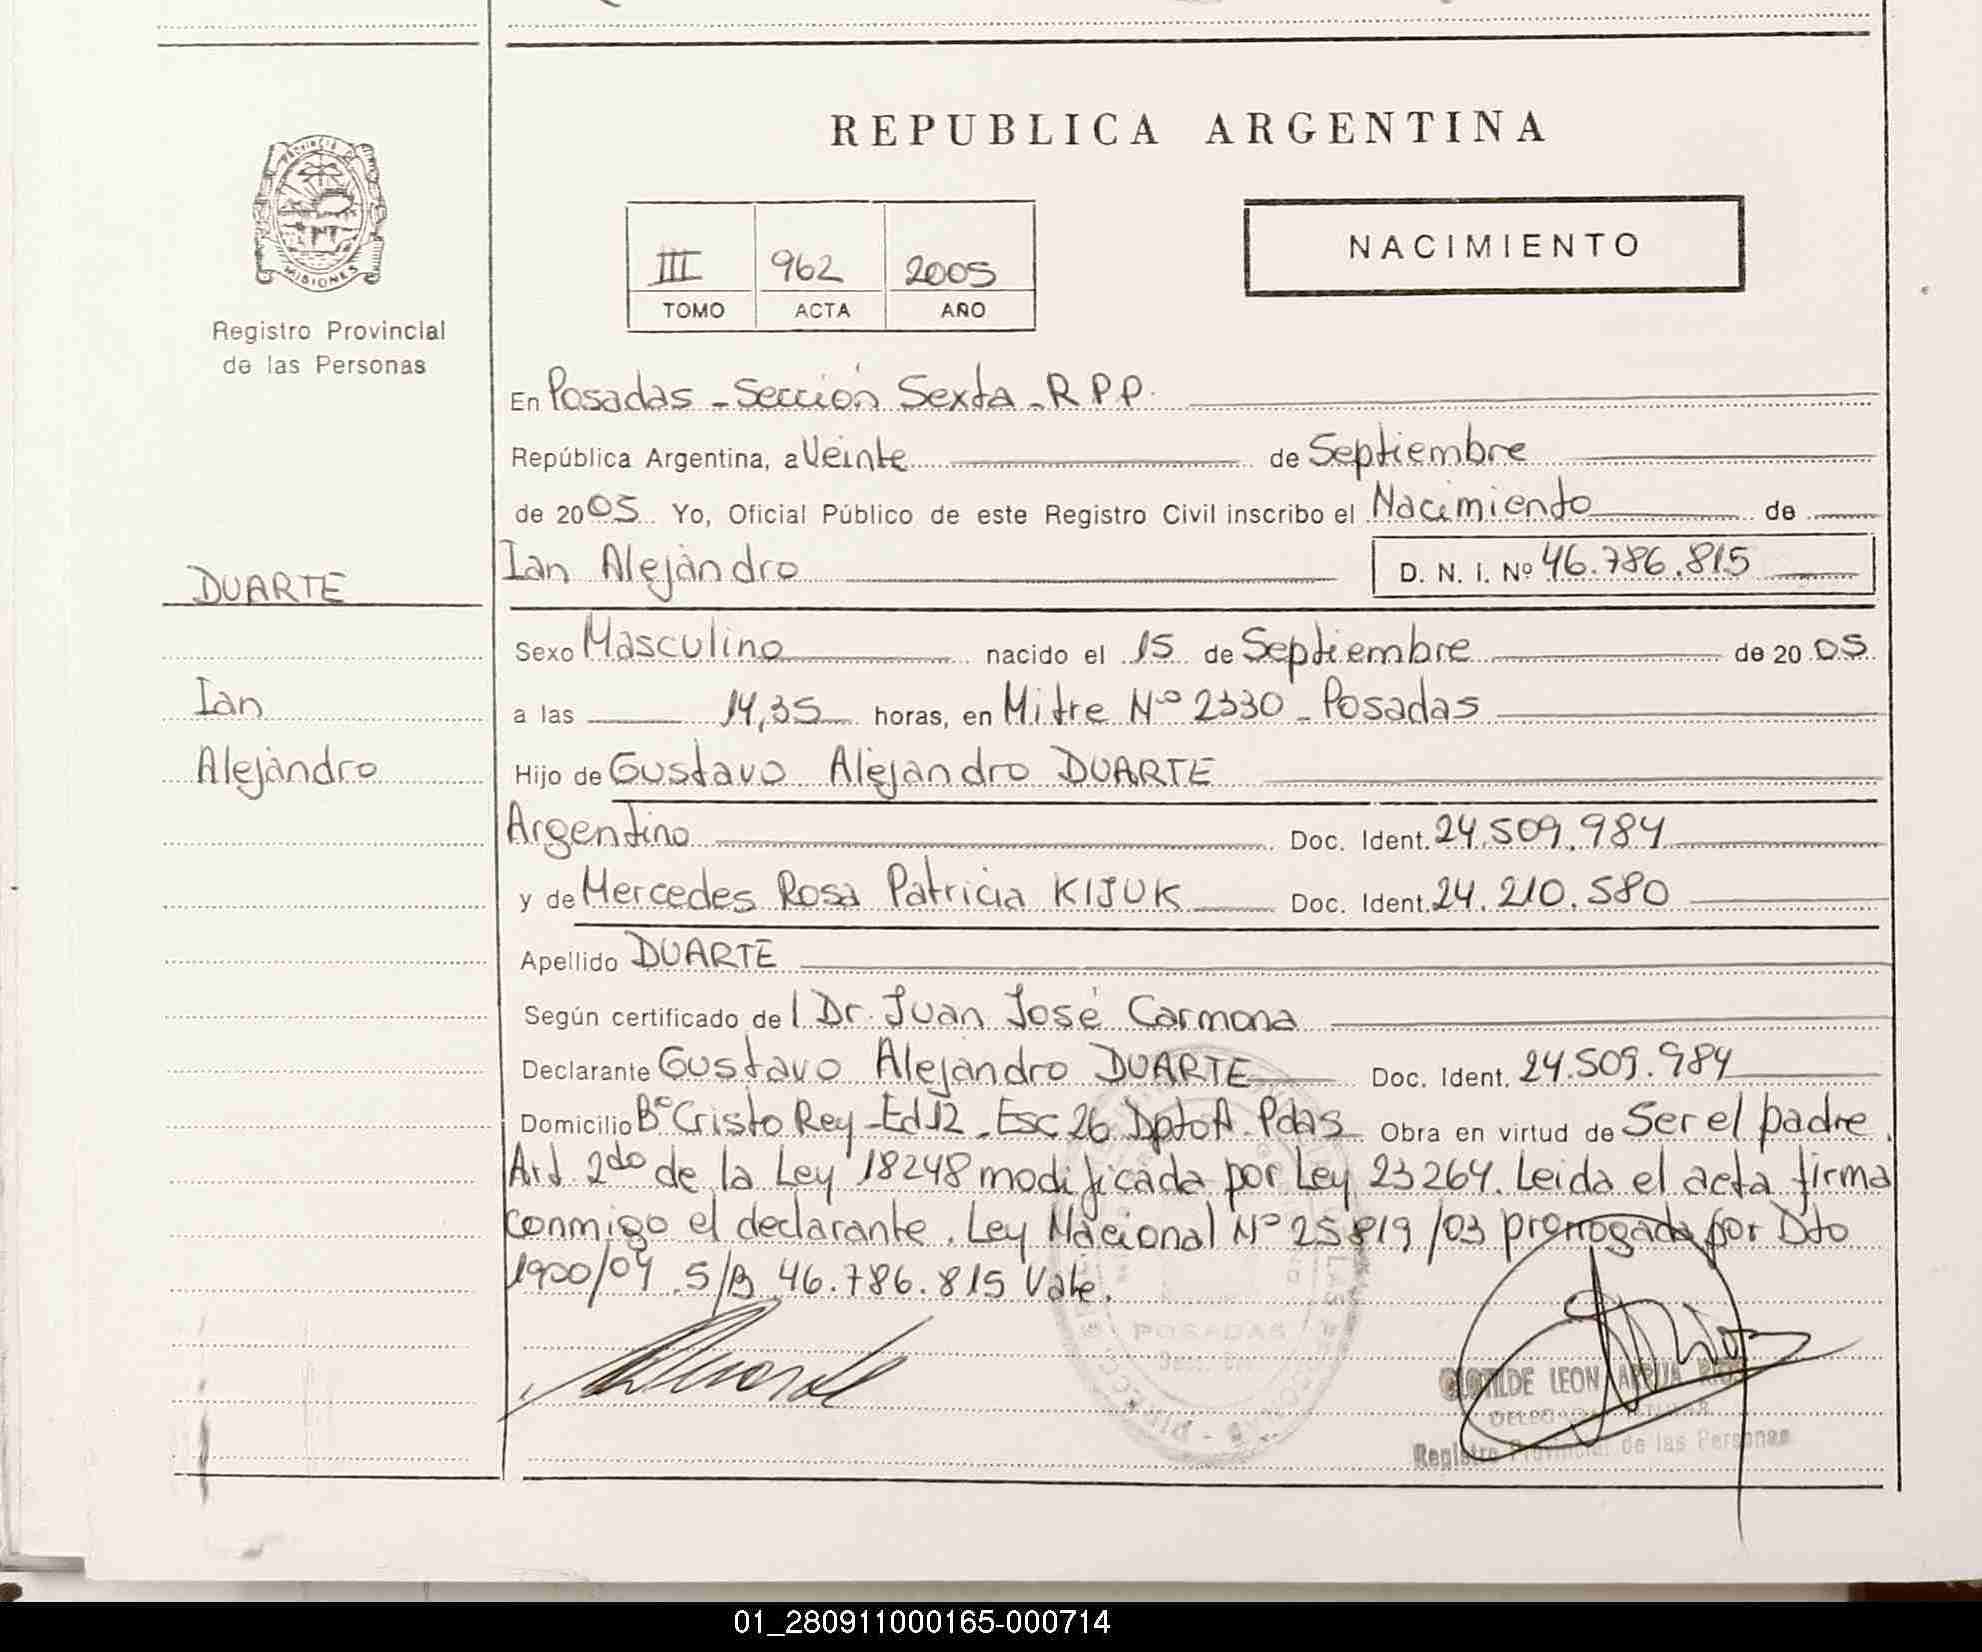 REPUBLICA ARGENTINA
PROVINCIA DE
MISIONES
Registro Provincial
de las Personas
III 962 2005
TOMO ACTA AÑO
NACIMIENTO
En Posadas - Sección Sexta - R P P.
República Argentina, a Veinte de Septiembre
de 2005 Yo, Oficial Público de este Registro Civil inscribo el Nacimiento de
DUARTE
Ian Alejandro D. N. I. Nº 46.786.815
Sexo Masculino nacido el 15 de Septiembre de 20 05
Ian
a las 14,35 horas, en Mitre Nº 2330 - Posadas
Alejandro
Hijo de Gustavo Alejandro DUARTE
Argentino Doc. Ident. 24.509.984
y de Mercedes Rosa Patricia KIJUK Doc. Ident. 24.210.580
Apellido DUARTE
Según certificado de l Dr. Juan José Carmona
Declarante Gustavo Alejandro DUARTE Doc. Ident. 24.509.984
Domicilio Bº Cristo Rey - Ed 12 - Esc 26 Dpto A - Pdas Obra en virtud de Ser el padre.
Art 2do de la Ley 18248 modificada por Ley 23264. Leida el acta firma
conmigo el declarante. Ley Nacional Nº 25819/03 prorrogada por Dto
1900/04. S/B 46.786.815 Vale.
POSADAS
CLOTILDE LEON
Registro Provincial de las Personas
01_280911000165-000714